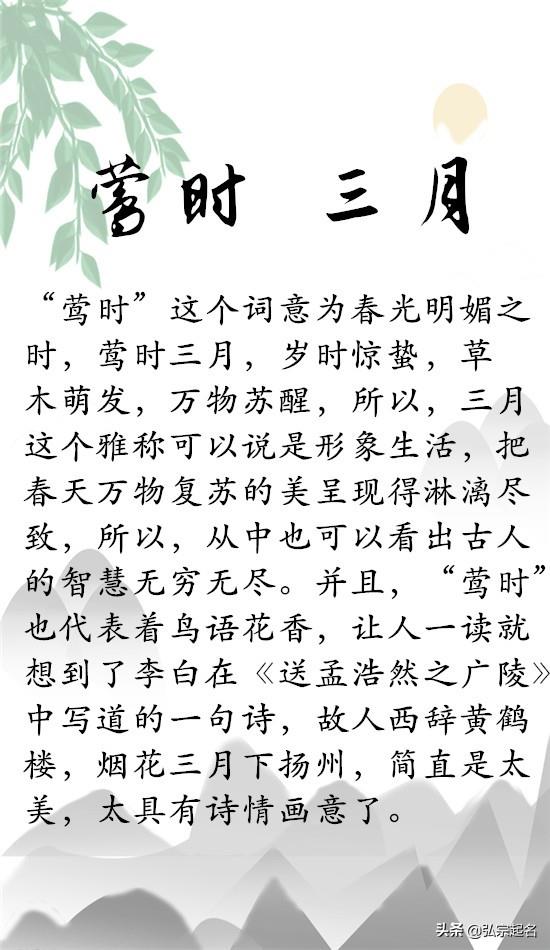 莺时 三月
“莺时”这个词意为春光明媚之
时，莺时三月，岁时惊蛰，草
木萌发，万物苏醒，所以，三月
这个雅称可以说是形象生活，把
春天万物复苏的美呈现得淋漓尽
致，所以，从中也可以看出古人
的智慧无穷无尽。并且，“莺时”
也代表着鸟语花香，让人一读就
想到了李白在《送孟浩然之广陵》
中写道的一句诗，故人西辞黄鹤
楼，烟花三月下扬州，简直是太
美，太具有诗情画意了。
头条 @弘宗起名